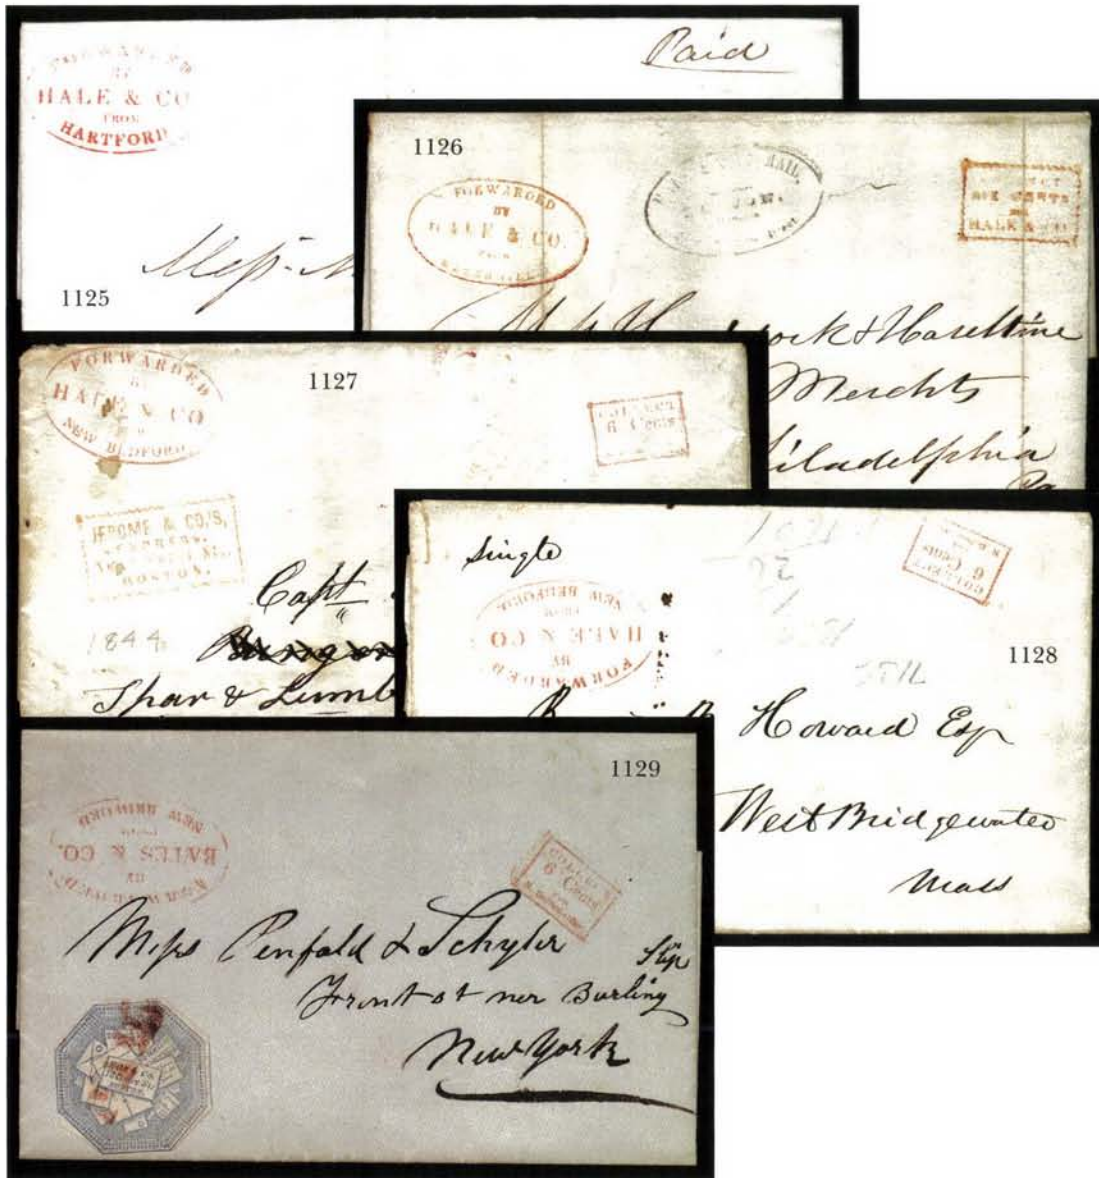 FORWARDED
BY
HALE & CO
FROM
HARTFORD
Paid
1125
1126
FORWARDED
BY
HALE & CO.
FROM
MAIL,
COLLECT
SIX CENTS
FOR
HALE & CO.
ock & Haseltine
Merchts
Philadelphia
Pa
1127
FORWARDED
BY
HALE & CO
NEW BEDFORD
COLLECT
6 Cents
JEROME & CO.'S,
EXPRESS,
BOSTON.
Capt
1844
Spar & Lumb
single
FORWARDED
BY
HALE & CO
FROM
NEW BEDFORD.
COLLECT
6 Cents
1128
Howard Esq
West Bridgewater
Mass
1129
FORWARDED
BY
BATES & CO.
FROM
NEW BEDFORD
COLLECT
6 Cents
Messs Penfold & Schyler
Slip
Front st ner Burling
New York